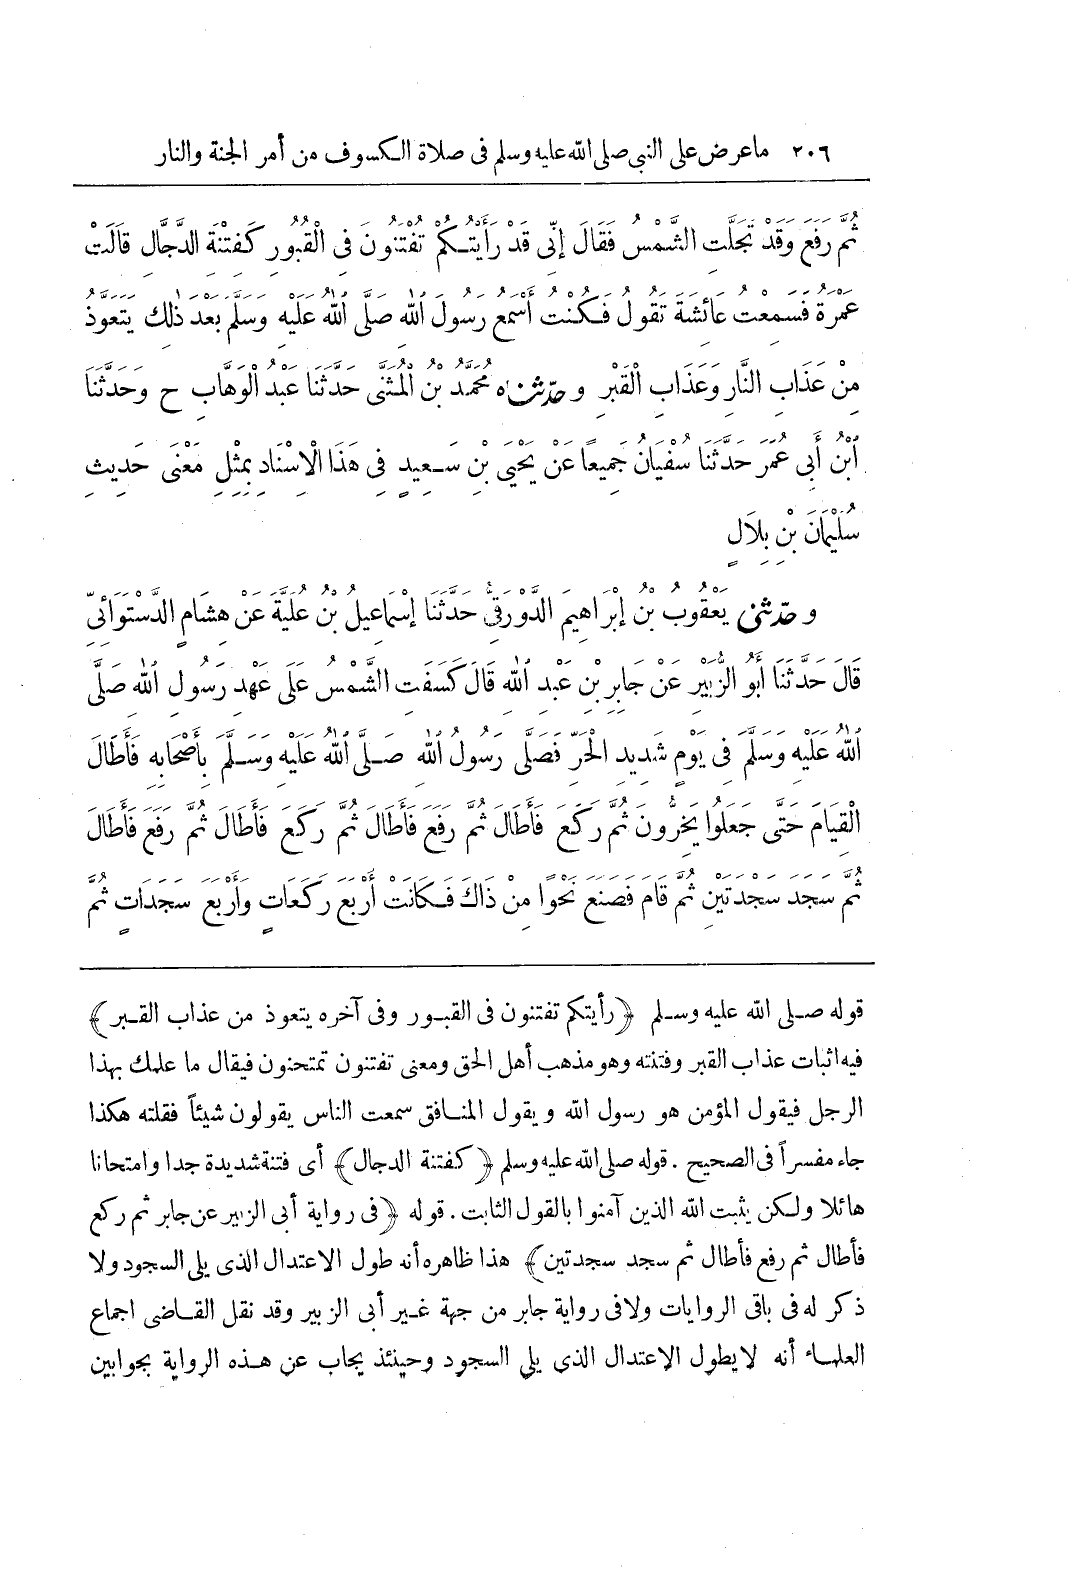 ٢٠٦ ما عرض على النبى صلى الله عليه وسلم فى صلاة الكسوف من أمر الجنة والنار
ثُمَّ رَفَعَ وَقَدْ تَجَلَّتِ الشَّمْسُ فَقَالَ إِنِّى قَدْ رَأَيْتُكُمْ تُفْتَنُونَ فِى الْقُبُورِ كَفِتْنَةِ الدَّجَّالِ قَالَتْ
عَمْرَةُ فَسَمِعْتُ عَائِشَةَ تَقُولُ فَكُنْتُ أَسْمَعُ رَسُولَ اللهِ صَلَّى اللهُ عَلَيْهِ وَسَلَّمَ بَعْدَ ذٰلِكَ يَتَعَوَّذُ
مِنْ عَذَابِ النَّارِ وَعَذَابِ الْقَبْرِ وحدّثناه مُحَمَّدُ بْنُ الْمُثَنَّى حَدَّثَنَا عَبْدُ الْوَهَّابِ ح وَحَدَّثَنَا
ابْنُ أَبِى عُمَرَ حَدَّثَنَا سُفْيَانُ جَمِيعًا عَنْ يَحْيَى بْنِ سَعِيدٍ فِى هَذَا الْإِسْنَادِ بِمِثْلِ مَعْنَى حَدِيثِ
سُلَيْمَانَ بْنِ بِلَالٍ
وحدّثنى يَعْقُوبُ بْنُ إِبْرَاهِيمَ الدَّوْرَقِىُّ حَدَّثَنَا إِسْمَاعِيلُ بْنُ عُلَيَّةَ عَنْ هِشَامٍ الدَّسْتَوَائِىِّ
قَالَ حَدَّثَنَا أَبُو الزُّبَيْرِ عَنْ جَابِرِ بْنِ عَبْدِ اللهِ قَالَ كَسَفَتِ الشَّمْسُ عَلَى عَهْدِ رَسُولِ اللهِ صَلَّى
اللهُ عَلَيْهِ وَسَلَّمَ فِى يَوْمٍ شَدِيدِ الْحَرِّ فَصَلَّى رَسُولُ اللهِ صَلَّى اللهُ عَلَيْهِ وَسَلَّمَ بِأَصْحَابِهِ فَأَطَالَ
الْقِيَامَ حَتَّى جَعَلُوا يَخِرُّونَ ثُمَّ رَكَعَ فَأَطَالَ ثُمَّ رَفَعَ فَأَطَالَ ثُمَّ رَكَعَ فَأَطَالَ ثُمَّ رَفَعَ فَأَطَالَ
ثُمَّ سَجَدَ سَجْدَتَيْنِ ثُمَّ قَامَ فَصَنَعَ نَحْوًا مِنْ ذَاكَ فَكَانَتْ أَرْبَعَ رَكَعَاتٍ وَأَرْبَعَ سَجَدَاتٍ ثُمَّ
قوله صلى الله عليه وسلم ﴿رأيتكم تفتنون فى القبور وفى آخره يتعوذ من عذاب القبر﴾
فيه اثبات عذاب القبر وفتنته وهو مذهب أهل الحق ومعنى تفتنون تمتحنون فيقال ما علمك بهذا
الرجل فيقول المؤمن هو رسول الله ويقول المنافق سمعت الناس يقولون شيئاً فقلته هكذا
جاء مفسراً فى الصحيح . قوله صلى الله عليه وسلم ﴿كفتنة الدجال﴾ أى فتنة شديدة جدا وامتحانا
هائلا ولكن يثبت الله الذين آمنوا بالقول الثابت . قوله ﴿فى رواية أبى الزبير عن جابر ثم ركع
فأطال ثم رفع فأطال ثم سجد سجدتين﴾ هذا ظاهره أنه طول الاعتدال الذى يلى السجود ولا
ذكر له فى باقى الروايات ولا فى رواية جابر من جهة غير أبى الزبير وقد نقل القاضى اجماع
العلماء أنه لا يطول الاعتدال الذى يلى السجود وحينئذ يجاب عن هذه الرواية بجوابين